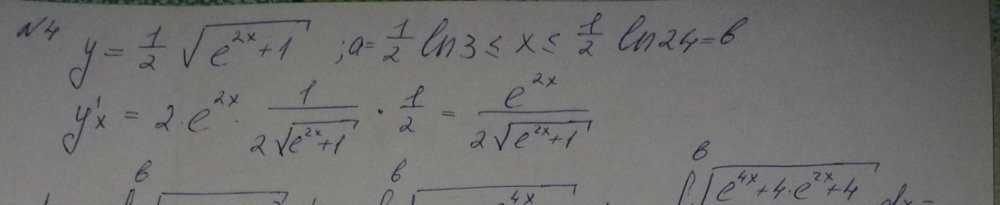 №4 y = 1/2 √(e^(2x)+1) ; a = 1/2 ln3 ≤ x ≤ 1/2 ln24 = b
y'x = 2·e^(2x) · 1/(2√(e^(2x)+1)) · 1/2 = e^(2x)/(2√(e^(2x)+1))
b b b √(e^(4x)+4·e^(2x)+4) dx =